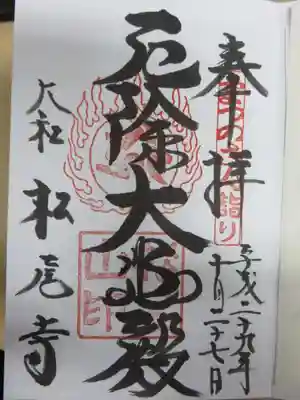 奉拝
平成二十九年
十月二十七日
厄除大悲殿
大和 松尾寺
詣り